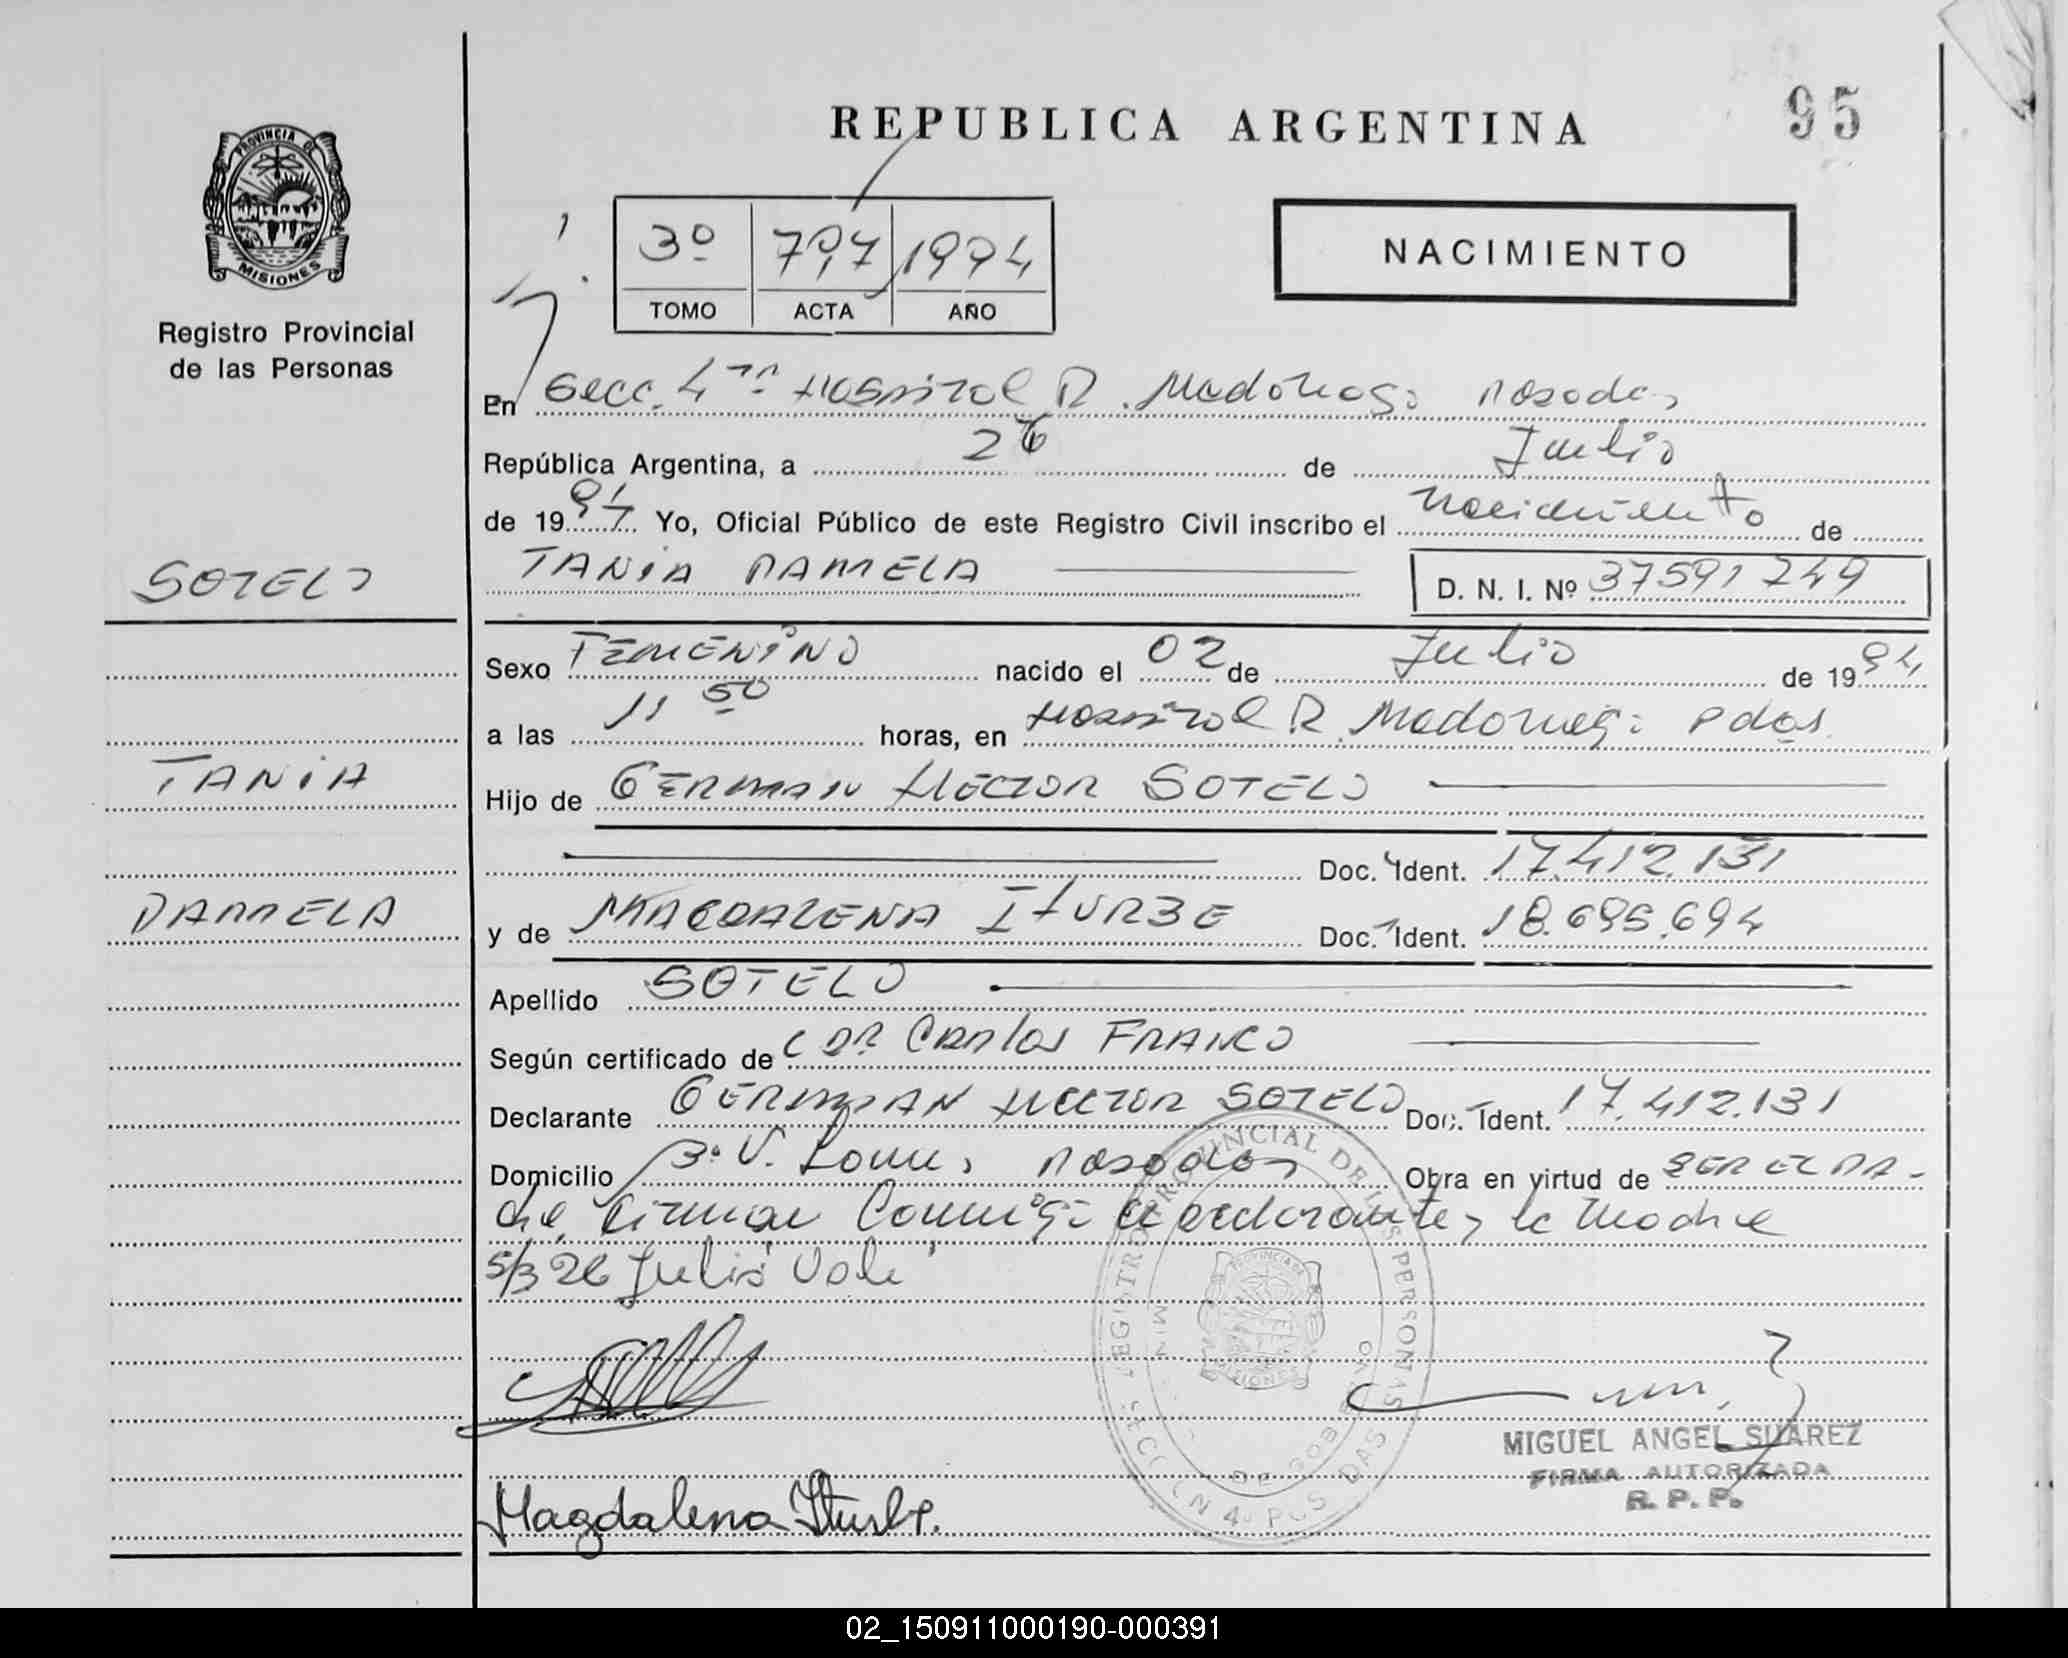 REPUBLICA ARGENTINA
95
PROVINCIA DE MISIONES
Registro Provincial
de las Personas
3º 797 1994
TOMO ACTA AÑO
NACIMIENTO
En Secc. 4ta Hospital R. Madariaga Posadas
República Argentina, a 26 de Julio
de 1994 Yo, Oficial Público de este Registro Civil inscribo el nacimiento de
TANIA PAMELA D. N. I. Nº 37591749
SOTELO
Sexo FEMENINO nacido el 02 de Julio de 1994
a las 11 50 horas, en Hospital R. Madariaga Pdas.
TANIA
Hijo de GERMAN HECTOR SOTELO
Doc. Ident. 17.412.131
PAMELA
y de MAGDALENA ITURBE Doc. Ident. 18.695.694
Apellido SOTELO
Según certificado de DR CARLOS FRANCO
Declarante GERMAN HECTOR SOTELO Doc. Ident. 17.412.131
Domicilio Posadas Obra en virtud de SER EL PA-
dre, firman Conmigo el declarante y la Madre
S/B 26 Julio Vale
REGISTRO PROVINCIAL DE LAS PERSONAS
MIGUEL ANGEL SUAREZ
FIRMA AUTORIZADA
R. P. P.
Magdalena Iturbe.
02_150911000190-000391